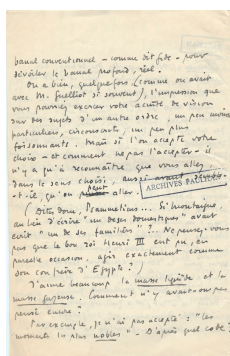 banal conventionnel – comme dit fête – pour
dévoiler le banal profond, réel.
On a bien, quelquefois (comme on avait
avec M. Guelliot si souvent), l'impression que
vous pourriez exercer votre acuité de vision
sur des sujets d'un autre ordre, un peu moins
particuliers, circonscrits, un peu plus
foisonnants. Mais si l'on accepte votre
choix – et comment ne pas l'accepter – il
n'y a qu'à reconnaître que vous allez
dans le sens choisi, aussi avant
est-il, qu'on peut aller.
ARCHIVES PAULHAN
(Dites donc,
au lieu d'écrire "un de ses domestiques" avait
écrit "un de ses familiers"?... Ne pensez-vous
pas que le bon roi Henri III eût pu, en
pareille occasion, agir exactement comme
son confrère d'Egypte?)
J'aime beaucoup la masse liquide et la
masse gazeuse. Comment n'y avait-on pas
pensé encore?
Par exemple, je n'ai pas accepté : "les
moments les plus nobles" – D'après quel code?